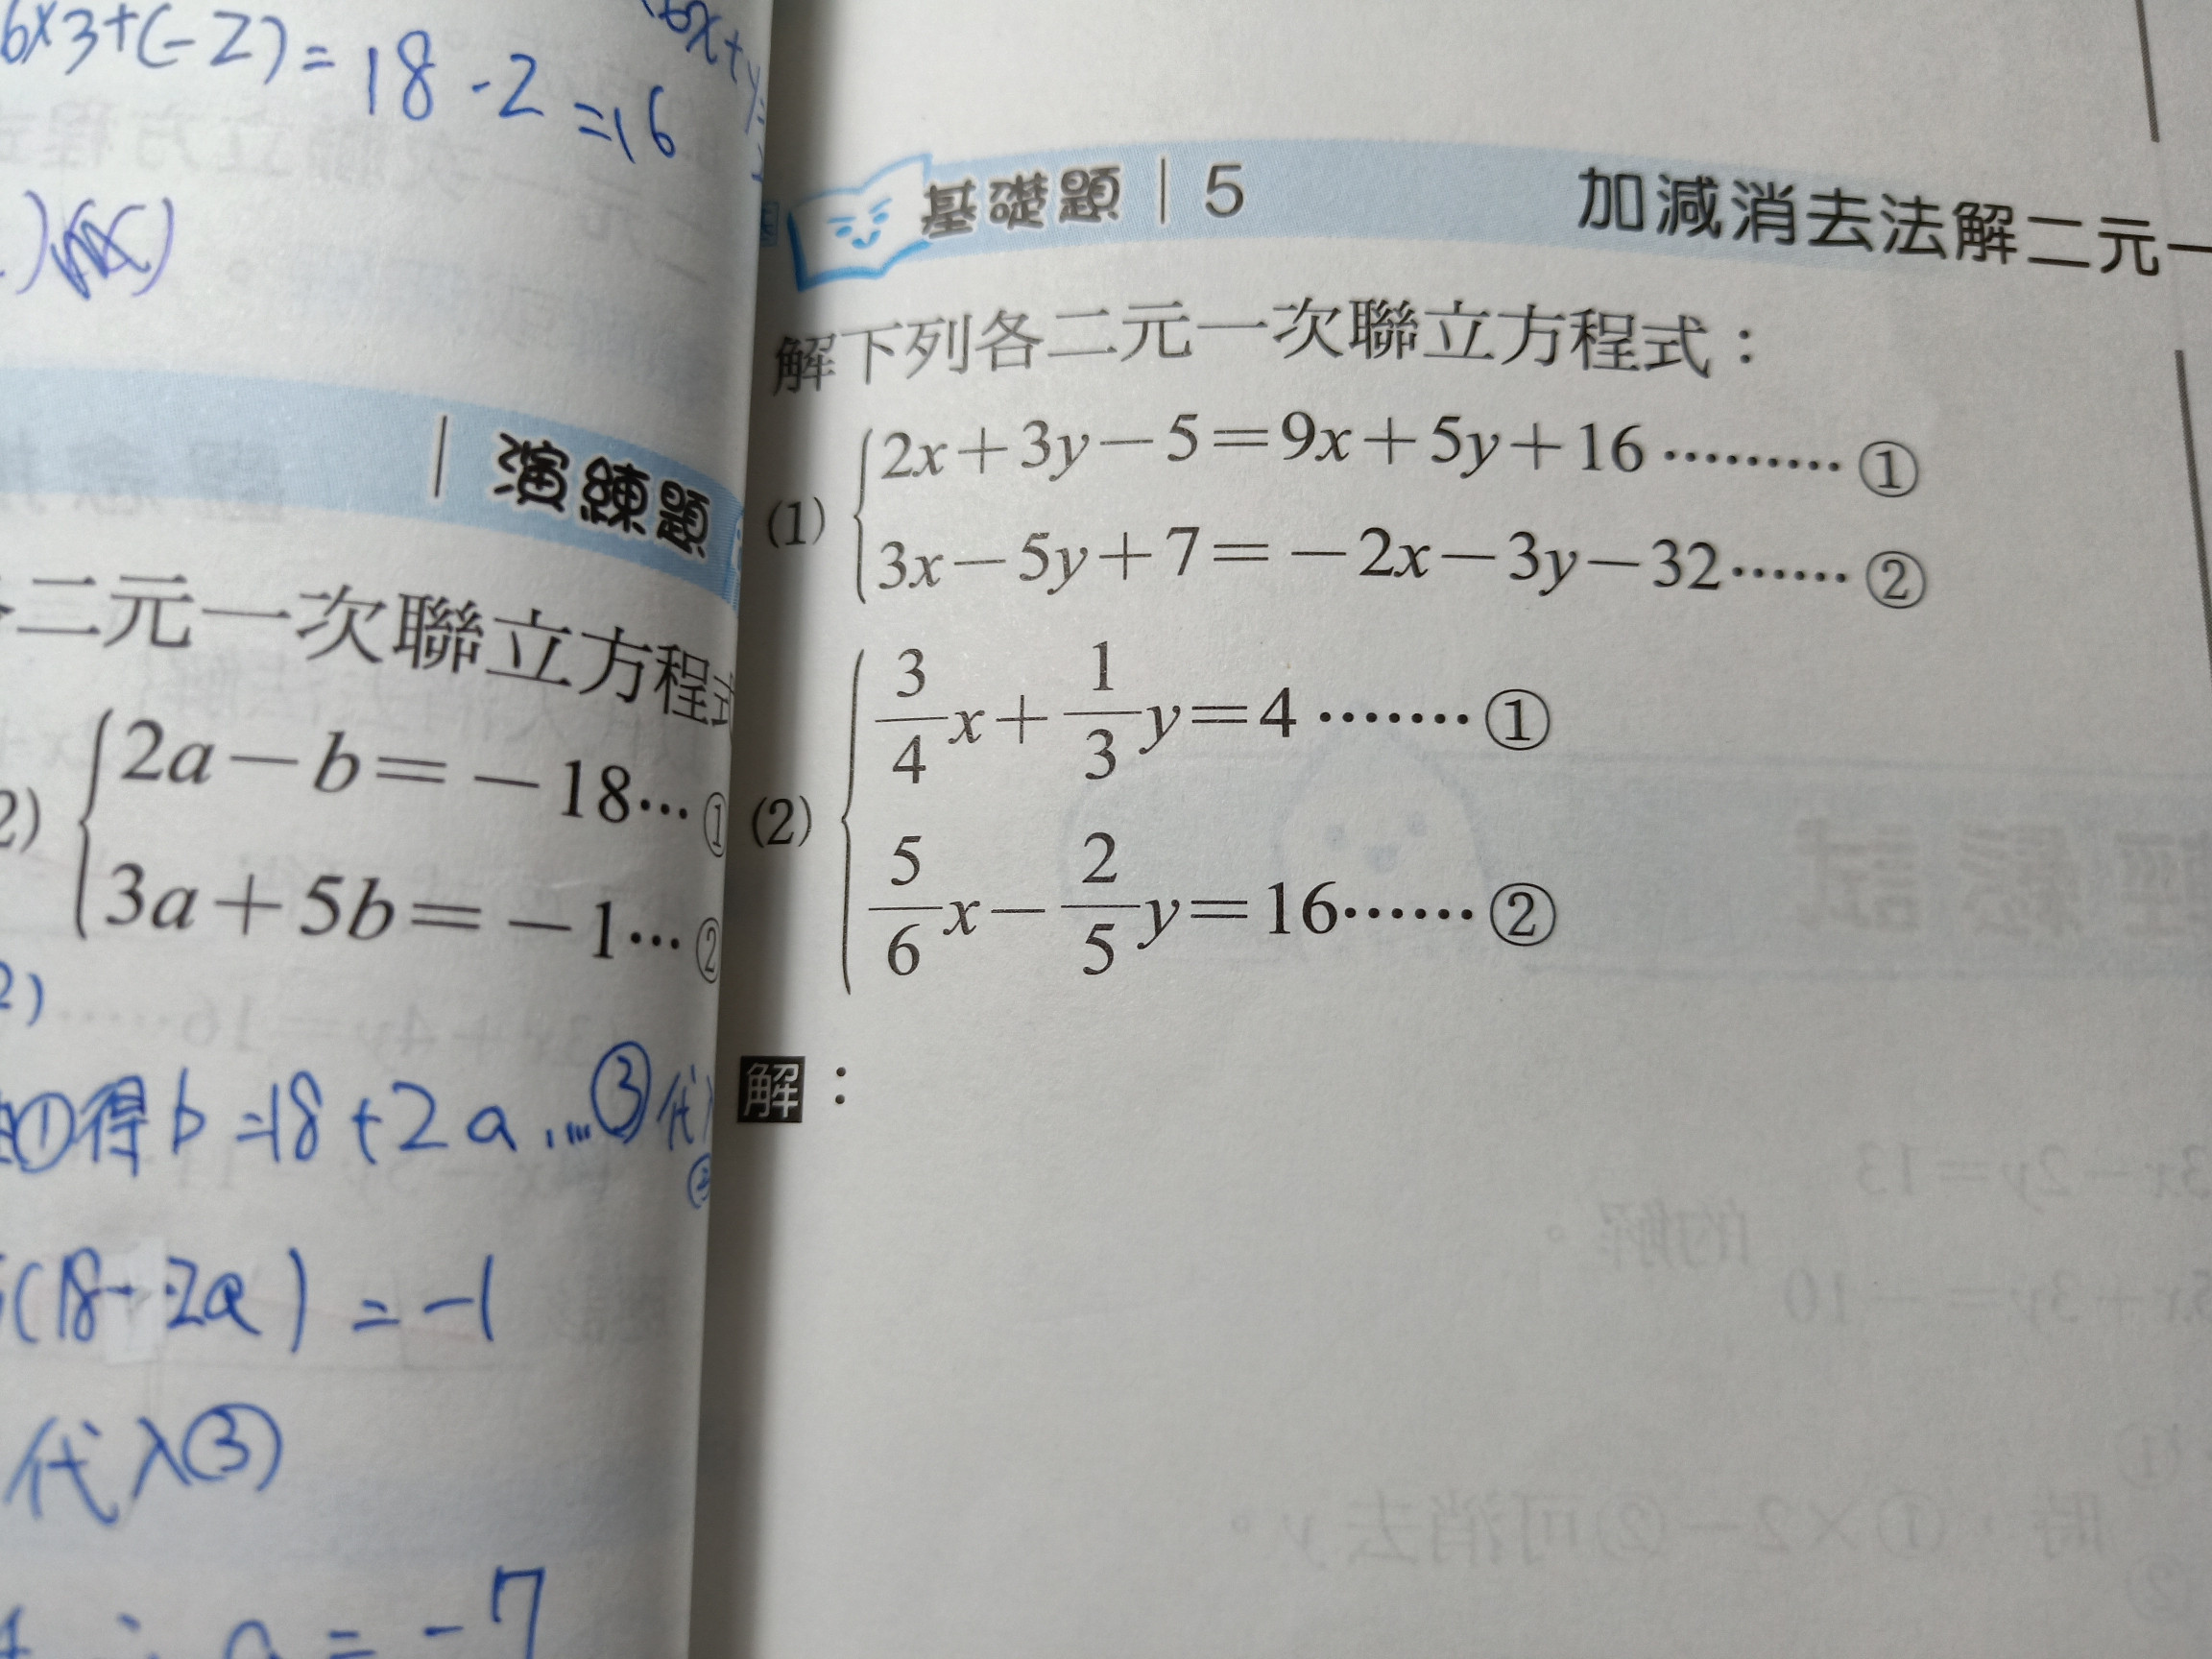 6×3+(-2)=18-2=16
6x+y=
演練題
二元一次聯立方程式
2) 2a－b=－18…①
3a＋5b=－1…②
2)
①得b=18+2a....③代
(18+2a)=-1
代入③
a=-7
基礎題 | 5 加減消去法解二元一
解下列各二元一次聯立方程式：
(1) 2x＋3y－5＝9x＋5y＋16………①
3x－5y＋7＝－2x－3y－32……②
(2) 3/4x＋1/3y＝4…….①
5/6x－2/5y＝16……②
解：